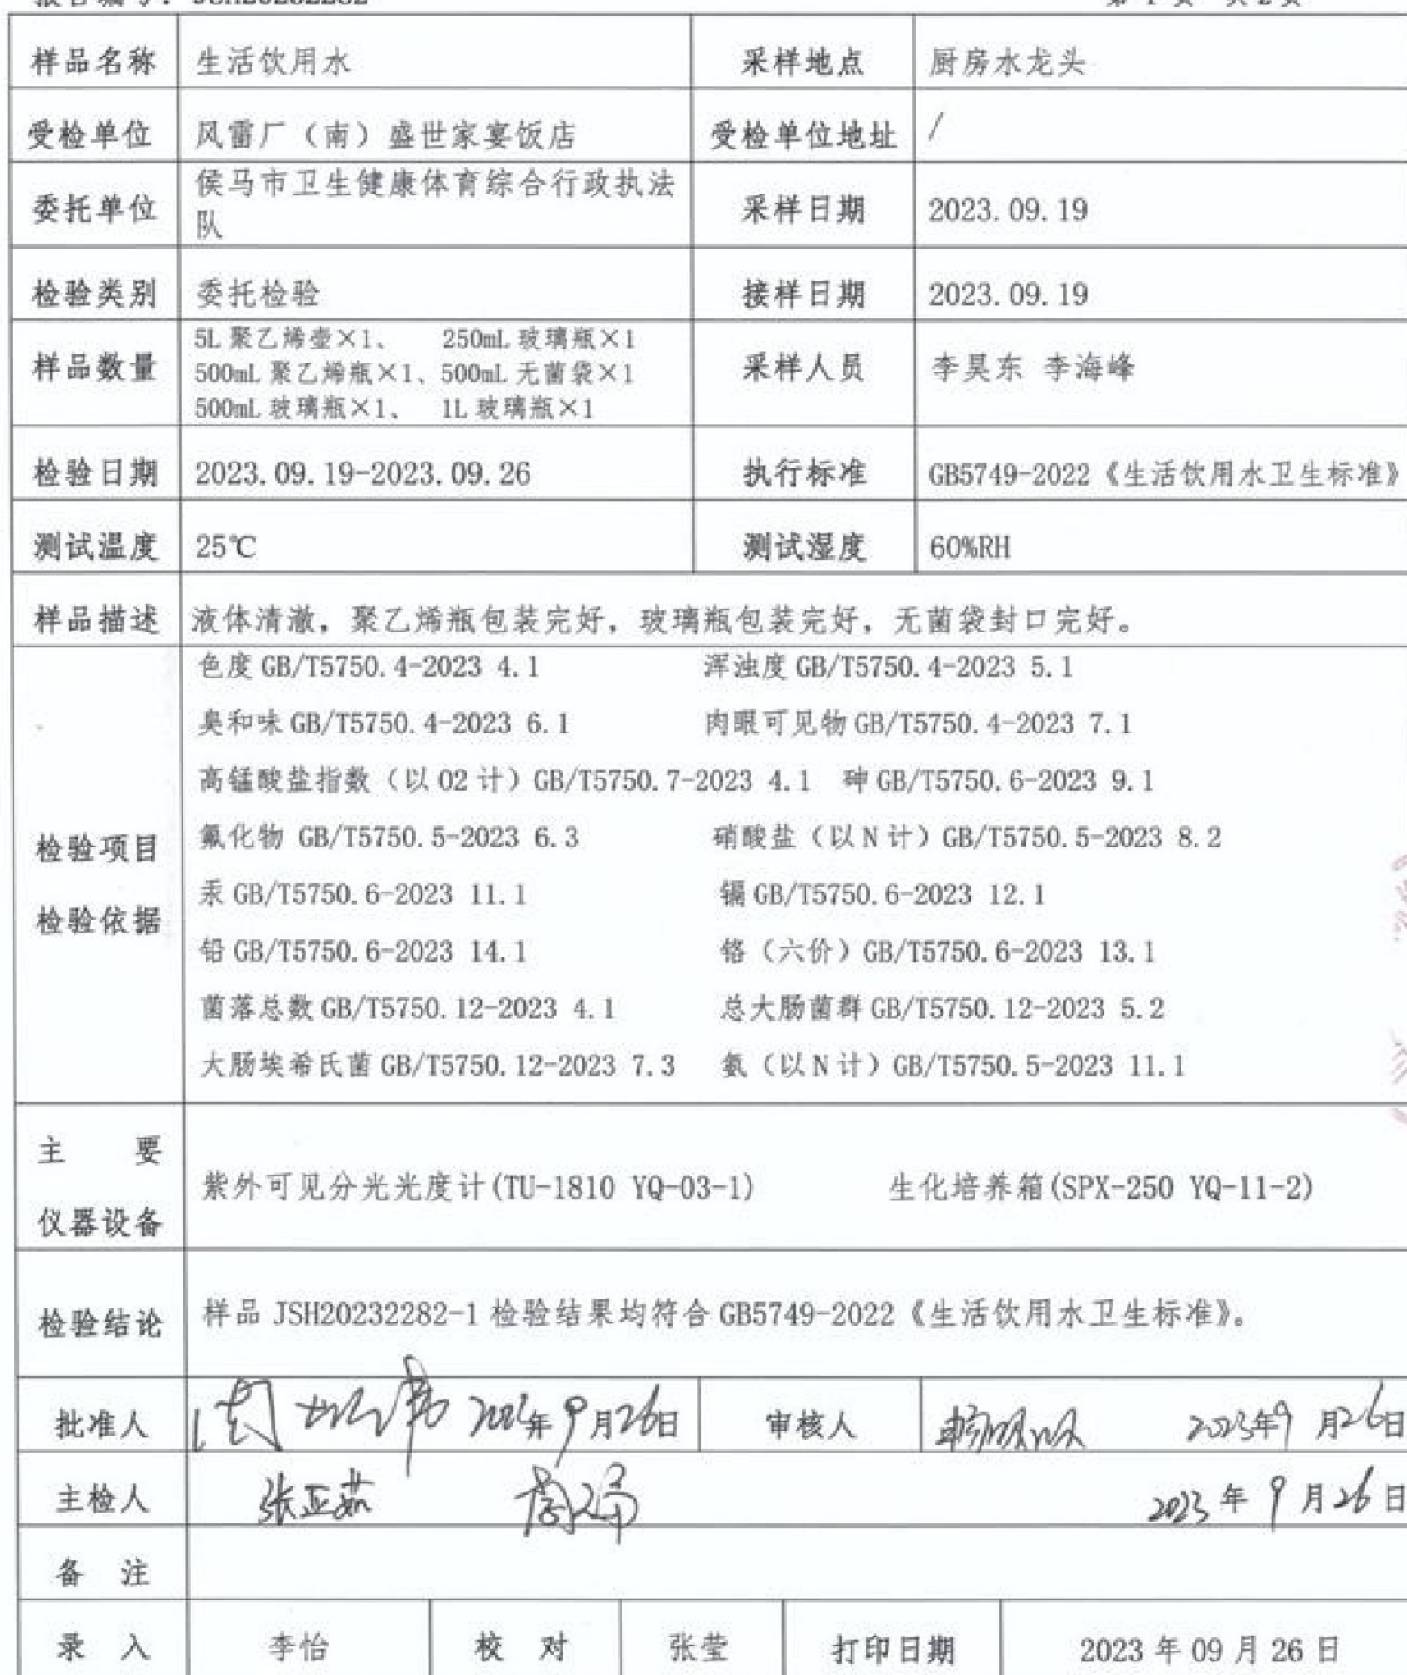 样品名称 生活饮用水 采样地点 厨房水龙头
受检单位 风雷厂（南）盛世家宴饭店 受检单位地址 /
委托单位 侯马市卫生健康体育综合行政执法队 采样日期 2023.09.19
检验类别 委托检验 接样日期 2023.09.19
样品数量 5L 聚乙烯壶×1、 250mL 玻璃瓶×1
500mL 聚乙烯瓶×1、500mL 无菌袋×1
500mL 玻璃瓶×1、 1L 玻璃瓶×1
采样人员 李昊东 李海峰
检验日期 2023.09.19-2023.09.26 执行标准 GB5749-2022《生活饮用水卫生标准》
测试温度 25℃ 测试湿度 60%RH
样品描述 液体清澈，聚乙烯瓶包装完好，玻璃瓶包装完好，无菌袋封口完好。
检验项目
检验依据
色度 GB/T5750.4-2023 4.1 浑浊度 GB/T5750.4-2023 5.1
臭和味 GB/T5750.4-2023 6.1 肉眼可见物 GB/T5750.4-2023 7.1
高锰酸盐指数（以 O2 计）GB/T5750.7-2023 4.1 砷 GB/T5750.6-2023 9.1
氟化物 GB/T5750.5-2023 6.3 硝酸盐（以 N 计）GB/T5750.5-2023 8.2
汞 GB/T5750.6-2023 11.1 镉 GB/T5750.6-2023 12.1
铅 GB/T5750.6-2023 14.1 铬（六价）GB/T5750.6-2023 13.1
菌落总数 GB/T5750.12-2023 4.1 总大肠菌群 GB/T5750.12-2023 5.2
大肠埃希氏菌 GB/T5750.12-2023 7.3 氨（以 N 计）GB/T5750.5-2023 11.1
主 要
仪器设备
紫外可见分光光度计(TU-1810 YQ-03-1) 生化培养箱(SPX-250 YQ-11-2)
检验结论 样品 JSH20232282-1 检验结果均符合 GB5749-2022《生活饮用水卫生标准》。
批准人 年9月26日 审核人 2023年9月26日
主检人 张亚茹 2023年9月26日
备 注
录 入 李怡 校 对 张莹 打印日期 2023 年 09 月 26 日